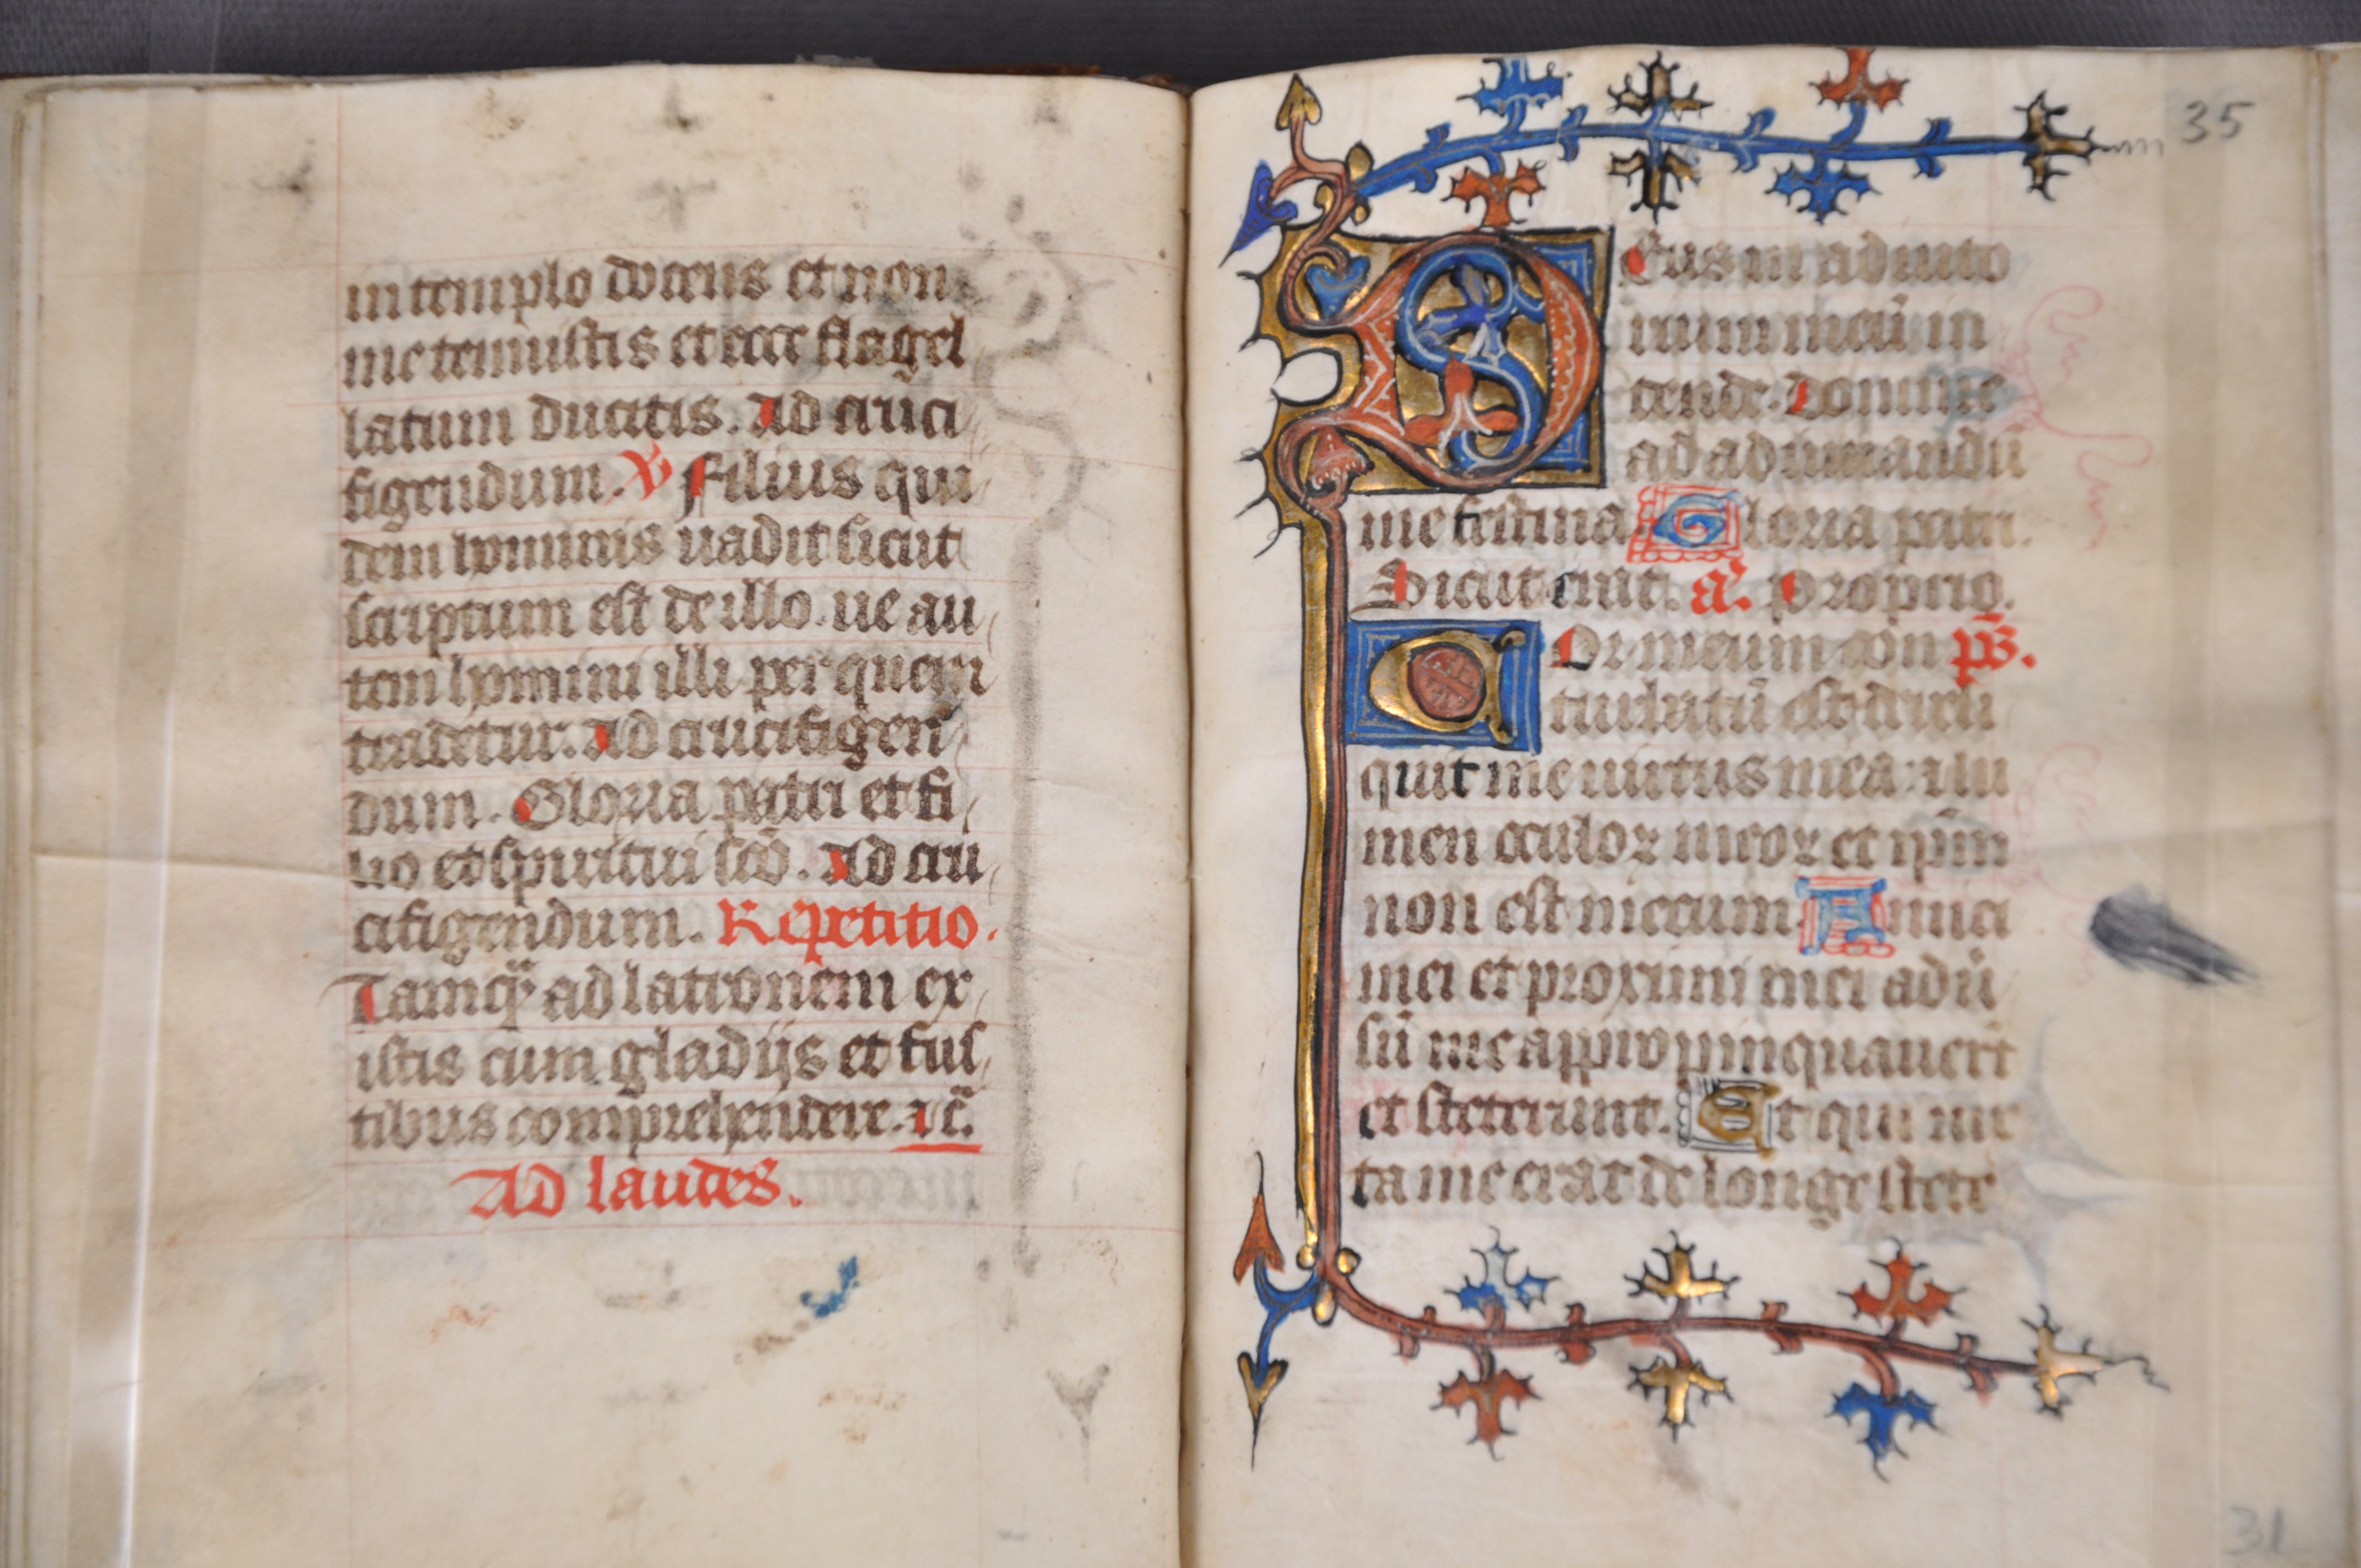 in templo docens et non
me tenuistis et ecce flagel
latum ducitis. Ad cruci
figendum. V Filius qui
dem hominis uadit sicut
scriptum est de illo. ue au
tem homini illi per quem
tradetur. Ad crucifigen
dum. Gloria patri et fi
lio et spiritui sc̄o. Ad cru
cifigendum. Repetitio.
Tamq̄ ad latronem ex
istis cum gladijs et fus
tibus comprehendere. ⁊c̄.
Ad laudes.
35
Deus in adiuto
rium meū in
tende. Domine
ad adiuuandū
me festina Gloria patri.
Sicut erat. a. Proprio.
Cor meum con ps̄.
turbatū est dereli
quit me uirtus mea: ⁊ lu
men oculoꝝ meoꝝ et ip̄m
non est mecum Amici
mei et proximi mei adu̇
sū me appropinquauert̄
et steterunt. Et qui iux
ta me erat de longe stete
31